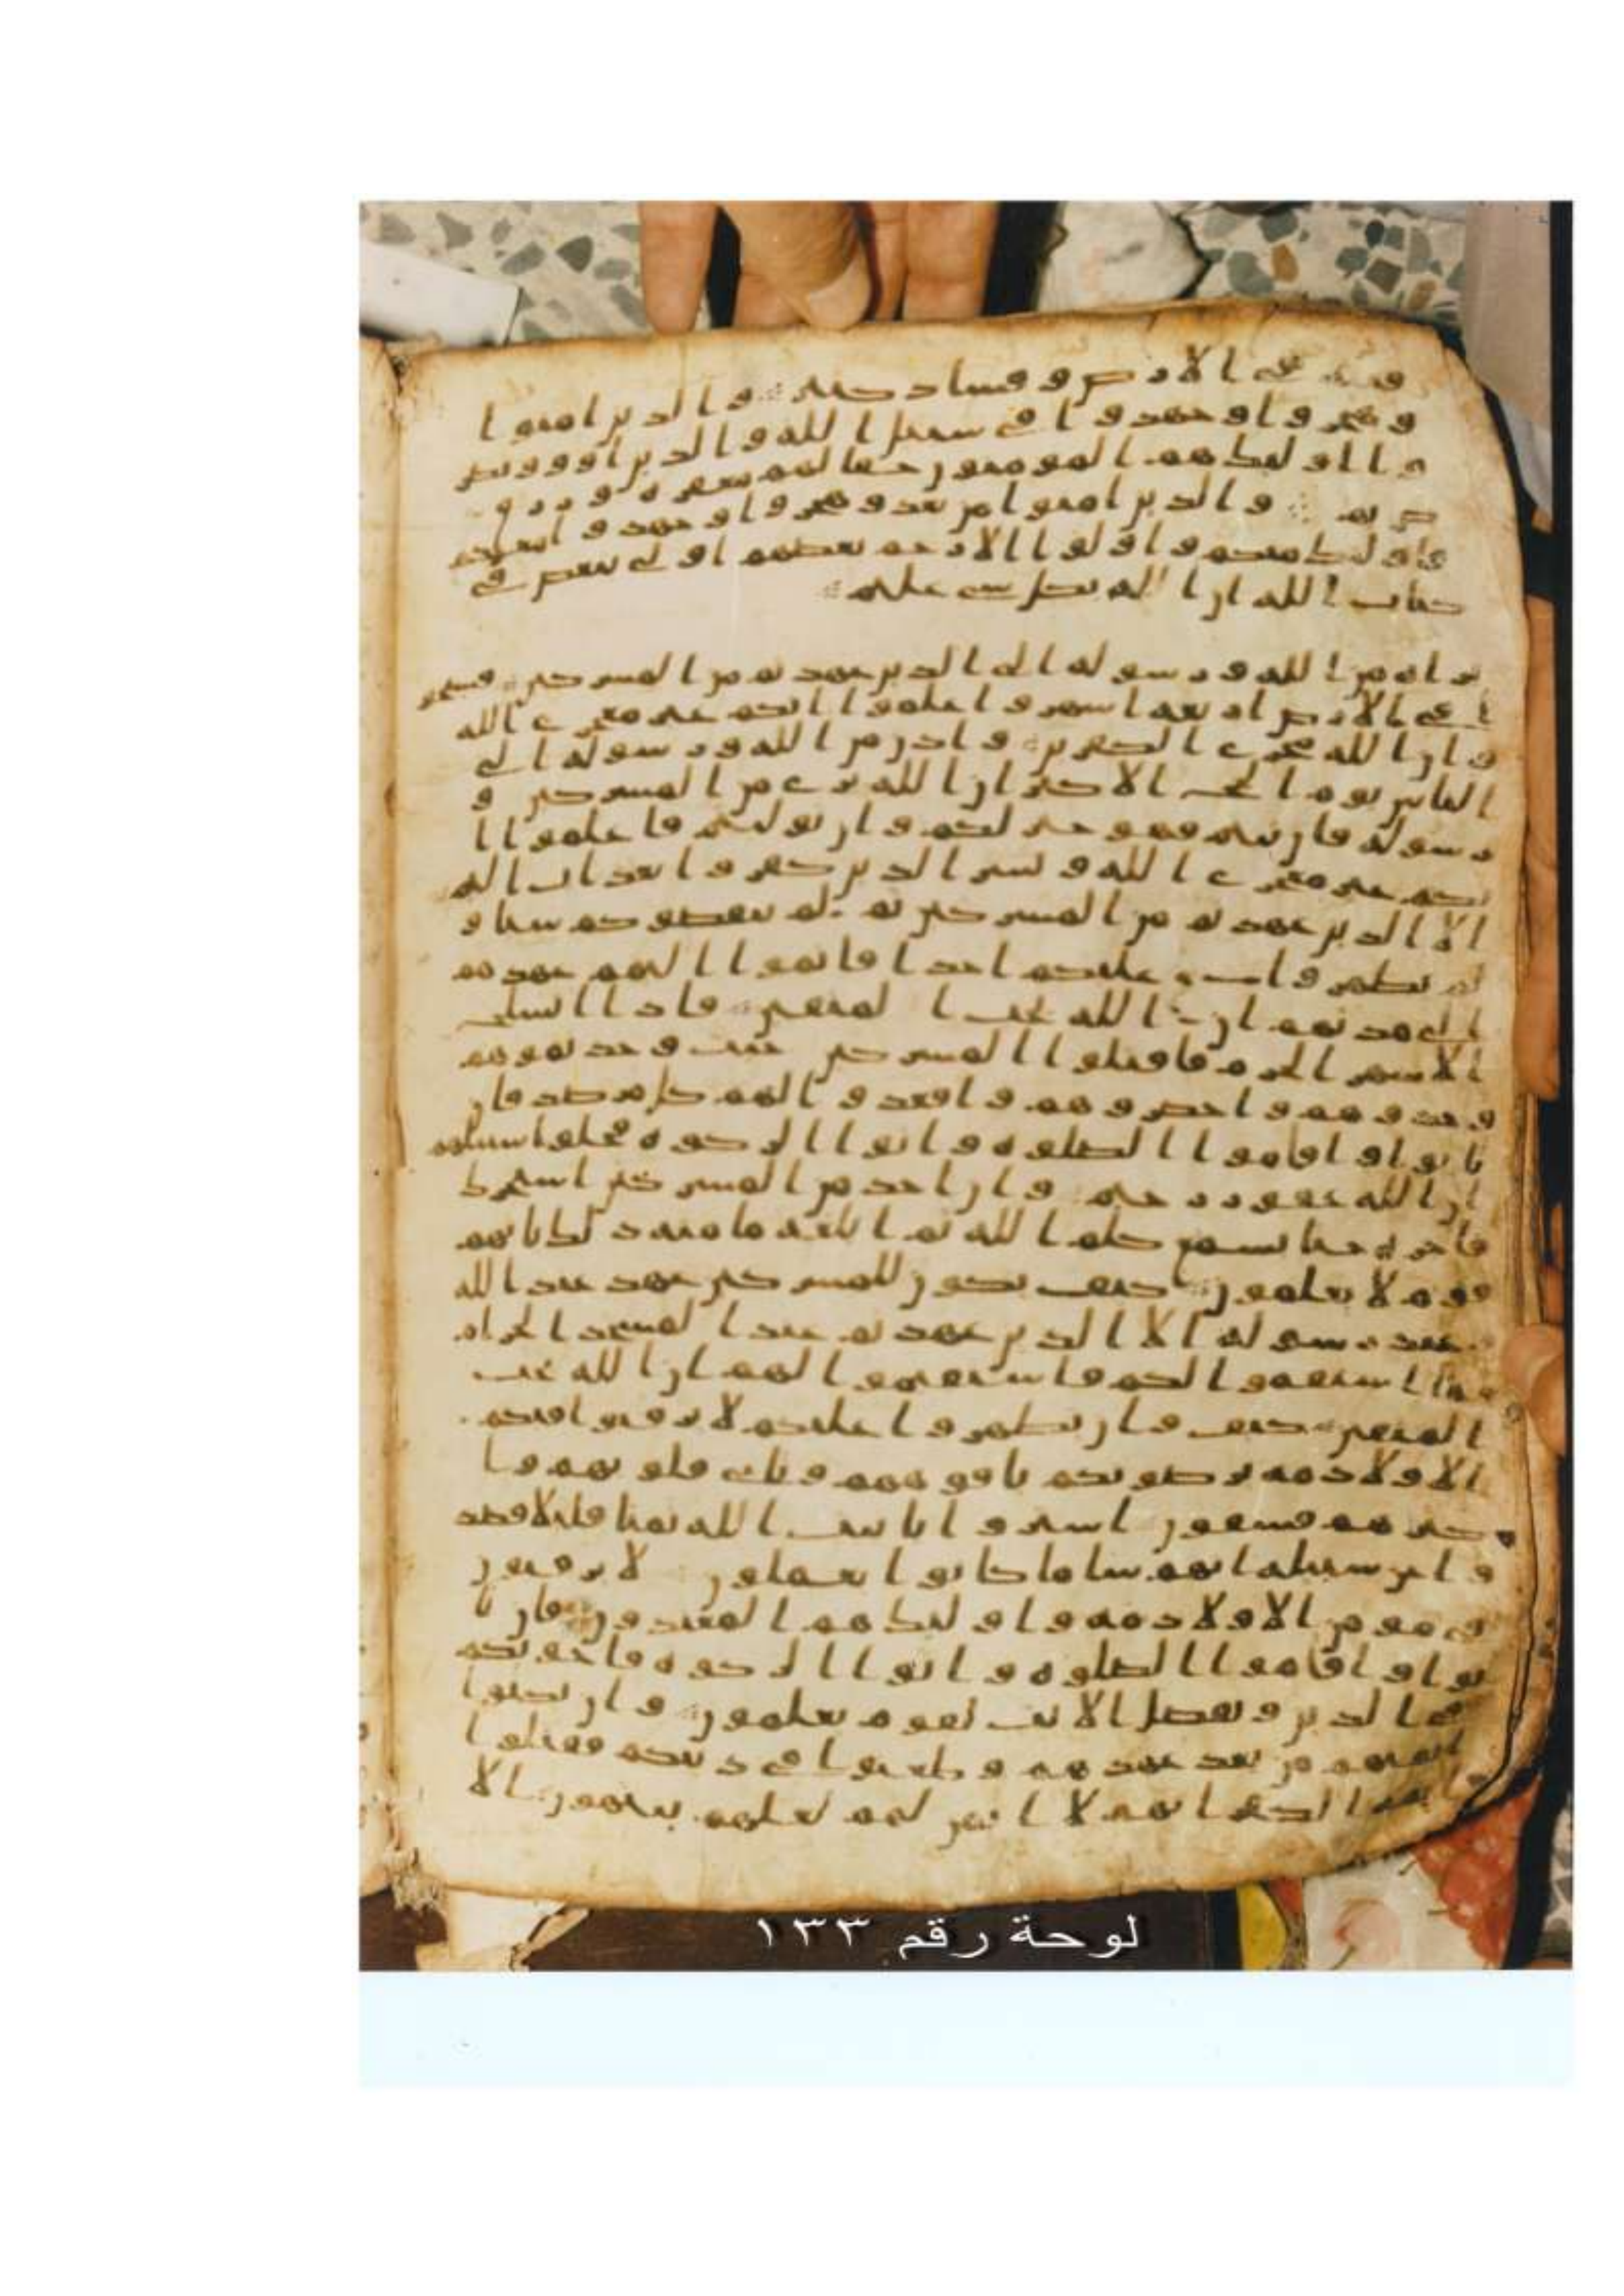 فتنة في الارض وفساد كبير والذين امنوا
وهجروا وجهدوا في سبيل الله والذين اووا ونصر
وا اولئك هم المومنون حقا لهم مغفرة ورزق
كريم والذين امنوا من بعد وهجروا وجهدوا معكم
فاولئك منكم واولوا الارحم بعضهم اولى ببعض في
كتاب الله ان الله بكل شي عليم
براه من الله ورسوله الى الذين عهدتم من المشركين فسيحو
ا في الارض اربعة اشهر واعلموا انكم غير معجزي الله
وان الله مخزي الكفرين واذن من الله ورسوله الى
الناس يوم الحج الاكبر ان الله بري من المشركين و
رسوله فان تبتم فهو خير لكم وان توليتم فاعلموا ا
نكم غير معجزي الله وبشر الذين كفروا بعذاب اليم
الا الذين عهدتم من المشركين ثم لم ينقصوكم شيا و
لم يظهروا عليكم احدا فاتموا اليهم عهدهم
الى مدتهم ان الله يحب المتقين فاذا انسلخ
الاشهر الحرم فاقتلوا المشركين حيث وجدتموهم
وخذوهم واحصروهم واقعدوا لهم كل مرصد فان
تابوا واقاموا الصلوة واتوا الزكوة فخلوا سبيلهم
ان الله غفور رحيم وان احد من المشركين استجرك
فاجره حتا يسمع كلم الله ثم ابلغه مامنه ذلك بانهم
قوم لا يعلمون كيف يكون للمشركين عهد عند الله
وعند رسوله الا الذين عهدتم عند المسجد الحرام
فما استقموا لكم فاستقيموا لهم ان الله يحب
المتقين كيف وان يظهروا عليكم لا يرقبوا فيكم
الا ولا ذمة يرضونكم بافوههم وتابى قلوبهم وا
كثرهم فسقون اشتروا بايت الله ثمنا قليلا فصد
وا عن سبيله انهم سا ما كانوا يعملون لا يرقبون
في مومن الا ولا ذمة واولئك هم المعتدون فان تا
بوا واقاموا الصلوة واتوا الزكوة فاخونكم
في الدين ونفصل الايت لقوم يعلمون وان نكثوا
ايمنهم من بعد عهدهم وطعنوا في دينكم فقتلوا
ايمة الكفر انهم لا ايمن لهم لعلهم ينتهون الا
لوحة رقم ١٣٣